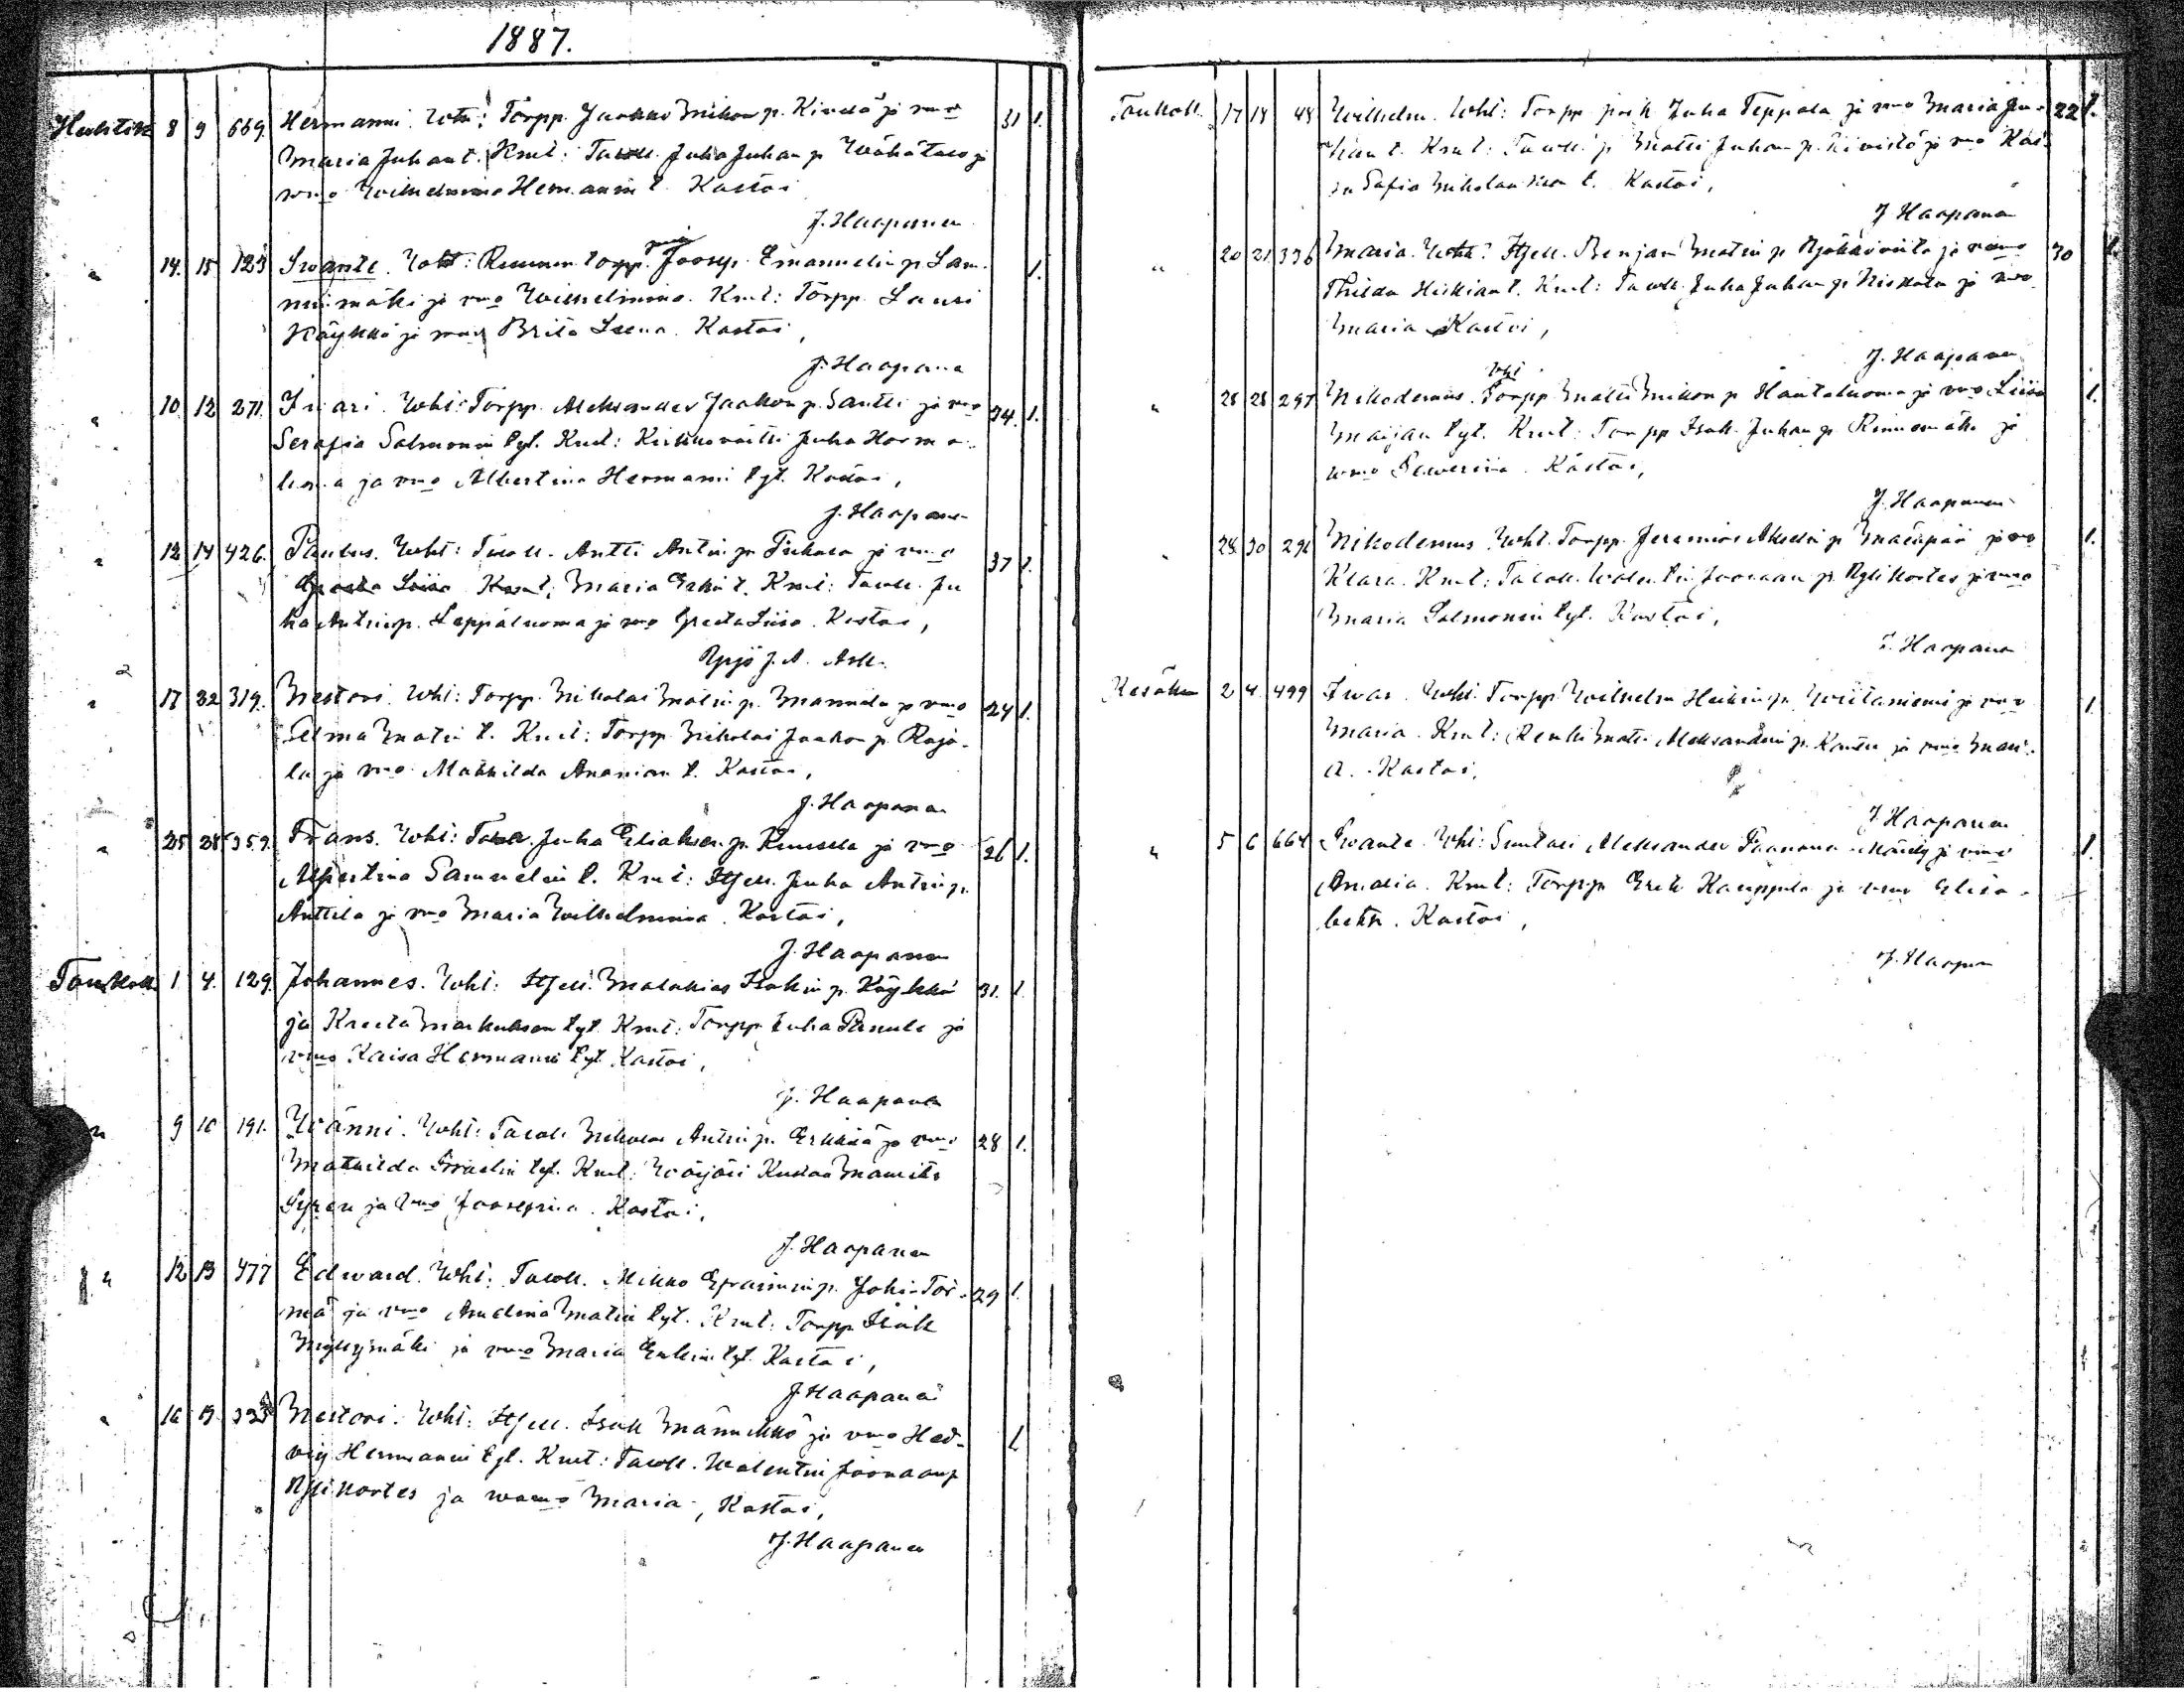 1887.
Huhtik 8 9 669. Hermanni. Whi: Torpp. Jaakko Mikon p. Kivelä ja vmo 31 1.
Maria Juhan t. Kmt: Taloll. Juha Juhan p. Wähätalo ja
vmo Wilhelmina Hermanni t. Kastoi
J. Haapanen
" 14. 15 123 Swante. Whi: Ruunun torpp. Joosep. Emanuelin p. Lam- 1.
minmäki ja vmo Wilhelmina. Kmt: Torpp. Lauri
Käykkä ja vmo Brita Leena. Kastoi,
J. Haapanen
" 10. 12 271. Iivari. Whi: Torpp. Aleksander Jaakon p. Santti ja vmo 34. 1.
Serafia Salmonin tyt. Kmt: Kirkkovoitti Juha Harma-
la ja vmo Albertina Hermanni tyt. Kastoi,
J. Haapanen
" 12 14 426. Paulus. Whi: Taloll. Antti Antin p. ja vmo 37 1.
Greeta Liisa Kmt: Maria Erkin t. Kmt: Taloll. Ju
ha Antin p. Leppäluoma ja vmo Greeta Liisa. Kastoi,
Yrjö J. A. Ask.
" 17 22 319. Nestori. Whi: Torpp. Nikolai Matin p. Mannila ja vmo 24 1.
Selma Matin t. Kmt: Torpp. Nikolai Jaakon p. Raja-
la ja vmo Mathilda Ananian t. Kastoi,
J. Haapanen
" 25 28 359. Frans. Whi: Talol. Juha Eliaksen p. Kuusela ja vmo 26 1.
Albertina Samuelin t. Kmt: Itsell. Juha Antin p.
Anttila ja vmo Maria Wilhelmina. Kastoi,
J. Haapanen
Toukok. 1 4. 129. Johannes. Whi: Itsell. Malakias Isakin p. Käykkä 31. 1.
ja Kreeta Markuksen tyt. Kmt: Torpp. Juha Panula ja
vmo Kaisa Hermanni tyt. Kastoi,
J. Haapanen
" 9 10 191. Wänni. Whi: Taloll. Nikolai Antin p. Erkkilä ja vmo 28 1.
Mathilda Israelin tyt. Kmt: Kustaa Mauritz
Syren ja vmo Joosepina. Kastoi,
J. Haapanen
" 12 13 477 Edward. Whi: Taloll. Mikko Eframin p. Joki-Tör- 29 1.
mä ja vmo Amalia Matin tyt. Kmt: Torpp. Isak
Myllymäki ja vmo Maria Erkin tyt. Kastoi,
J. Haapanen
" 16 19 335 Nestori. Whi: Itsell. Isak Männikkö ja vmo Hed- 1
vig Hermanni tyt. Kmt: Taloll. Walentin Joonaan p
Ylikortes ja waimo Maria, Kastoi,
J. Haapanen
Toukok. 17 18 48 Wilhelm. Whi: Torpp. poik. Juha Teppola ja vmo Maria Ju- 22 1.
han t. Kmt: Taloll. p. Matti Juhan p. Kivistö ja vmo Kai-
sa Sofia Nikolauksen t. Kastoi,
J. Haapanen
" 20 21 336 Maria. Whi: Itsell. Benjam Matin p. ja vmo 30 1.
Thilda Heikin t. Kmt: Taloll. Juha Juhan p. Niskala ja vmo
Maria Kastoi,
J. Haapanen
" 25 28 297 Nikodemus. Whi Torpp. Matti Mikon p. Hautaluoma ja vmo Liisa 1.
Maijan tyt. Kmt: Torpp. Isak Juhan p. Rinnemäki ja
vmo Seweriina. Kastoi,
J. Haapanen
" 28. 30 291 Nikodemus. Whi. Torpp. Jeremias Akselin p. Mäenpää ja vmo 1.
Klara. Kmt: Taloll. Walentin Joonaan p. Ylikortes ja vmo
Maria Salmonin tyt. Kastoi,
J. Haapanen
Kesäkuu 2 4. 499 Iwar. Whi: Torpp. Wilhelm Heikin p. Wiitaniemi ja vmo 1.
Maria. Kmt: Renki Matti Aleksanderin p. Kantu ja vmo Mari-
a. Kastoi,
J. Haapanen
" 5 6 664 Swante. Whi: Suutari Aleksander Paanana-Mäntty ja vmo 1.
Amalia. Kmt: Torpp. Erik Kauppila ja vmo Elisa-
beth. Kastoi,
J. Haapanen